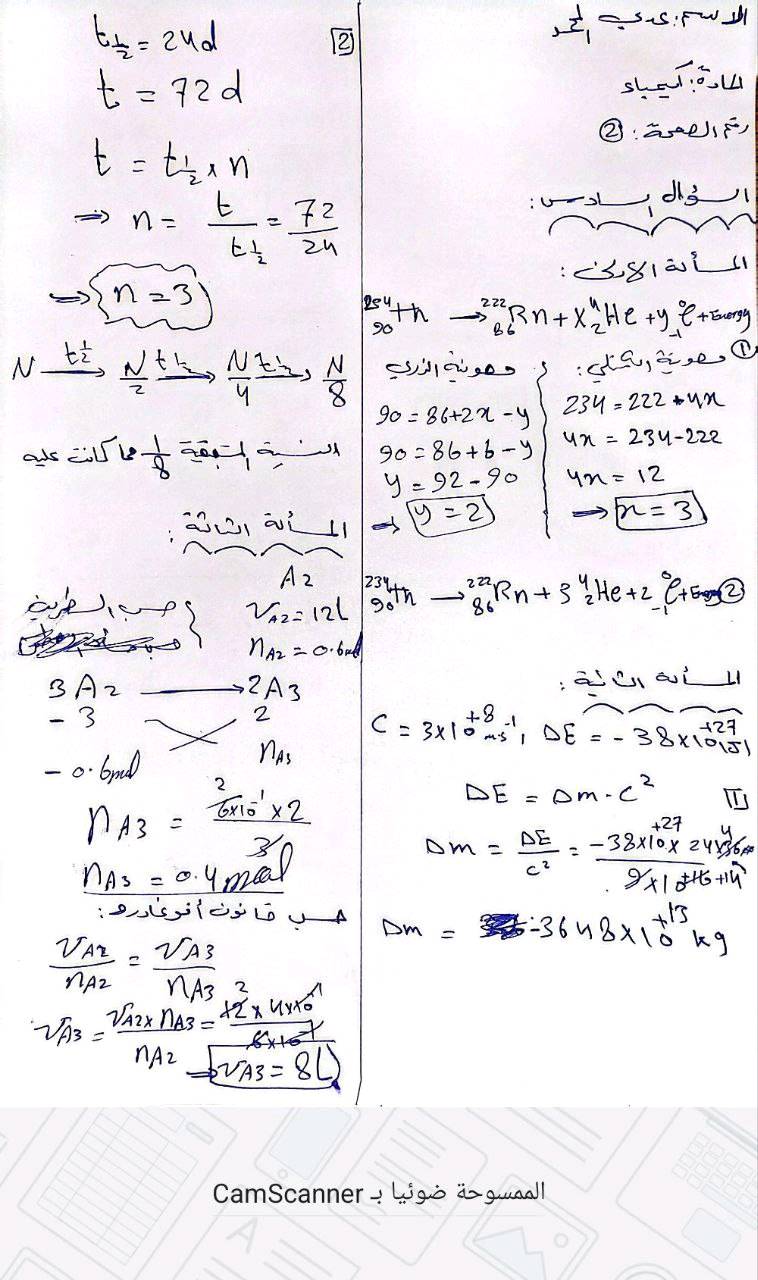 الاسم: عدي
المادة: كيمياء
رقم الصفحة: ②
السؤال السادس:
المسألة الأولى:
²³⁴₉₀Th → ²²²₈₆Rn + x ⁴₂He + y ⁰₋₁e + Energy
①
234 = 222 + 4x
4x = 234 - 222
4x = 12
⇒ x = 3
90 = 86 + 2x - y
90 = 86 + 6 - y
y = 92 - 90
⇒ y = 2
²³⁴₉₀Th → ²²²₈₆Rn + 3 ⁴₂He + 2 ⁰₋₁e + Energy ②
المسألة الثانية:
C = 3×10⁺⁸ m·s⁻¹, ΔE = -38×10⁺²⁷ (J)
ΔE = Δm · c² 1
Δm = ΔE / c² =
Δm = -3648×10⁺¹³ kg
2 t½ = 24d
t = 72d
t = t½ × n
⇒ n = t / t½ = 72 / 24
⇒ n = 3
N →(t½) N/2 →(t½) N/4 →(t½) N/8
النسبة المتبقية 1/8 مما كانت عليه
المسألة الثالثة:
A2
V A2 = 12L
n A2 = 0.6mol
3A2 → 2A3
- 3 2
- 0.6mol n A3
n A3 = 6×10⁻¹ × 2 / 3
n A3 = 0.4 mol
حسب قانون أفوغادرو:
V A2 / n A2 = V A3 / n A3
V A3 = V A2 × n A3 / n A2 = 12 × 4×10⁻¹ / 6×10⁻¹
⇒ V A3 = 8L
الممسوحة ضوئيا بـ CamScanner